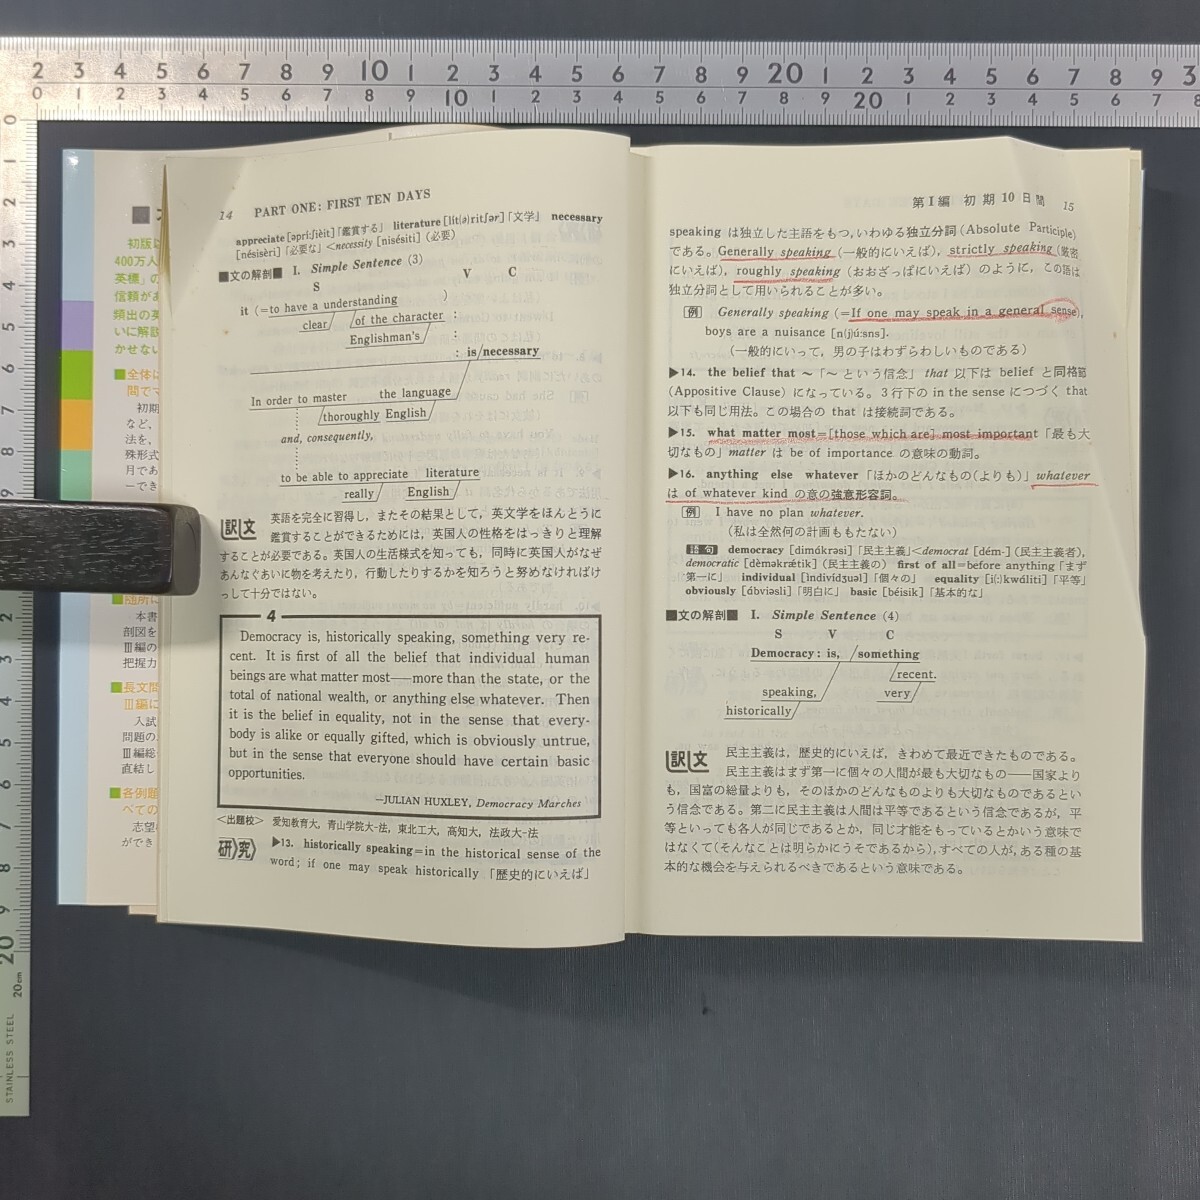 14 PART ONE: FIRST TEN DAYS
appreciate [əpríːʃièit]「鑑賞する」 literature [lít(ə)ritʃər]「文学」 necessary
[nésisèri]「必要な」<necessity [nisésiti]（必要）
■文の解剖■ I. Simple Sentence (3)
S V C
it (=to have a understanding )
clear of the character :
Englishman's :
: is necessary
In order to master the language
thoroughly English
and, consequently,
to be able to appreciate literature
really English
訳文 英語を完全に習得し，またその結果として，英文学をほんとうに
鑑賞することができるためには，英国人の性格をはっきりと理解
することが必要である。英国人の生活様式を知っても，同時に英国人がなぜ
あんなぐあいに物を考えたり，行動したりするかを知ろうと努めなければけ
っして十分ではない。
4
Democracy is, historically speaking, something very re-
cent. It is first of all the belief that individual human
beings are what matter most——more than the state, or the
total of national wealth, or anything else whatever. Then
it is the belief in equality, not in the sense that every-
body is alike or equally gifted, which is obviously untrue,
but in the sense that everyone should have certain basic
opportunities.
—JULIAN HUXLEY, Democracy Marches
<出題校> 愛知教育大，青山学院大-法，東北工大，高知大，法政大-法
研究 ▶13. historically speaking=in the historical sense of the
word; if one may speak historically 「歴史的にいえば」
第Ⅰ編 初期10日間 15
speaking は独立した主語をもつ，いわゆる独立分詞 (Absolute Participle)
である。Generally speaking (一般的にいえば)，strictly speaking (厳密
にいえば)，roughly speaking (おおざっぱにいえば) のように，この語は
独立分詞として用いられることが多い。
[例] Generally speaking (=If one may speak in a general sense),
boys are a nuisance [n(j)úːsns].
（一般的にいって，男の子はわずらわしいものである）
▶14. the belief that ～「～ という信念」 that 以下は belief と同格節
(Appositive Clause) になっている。3行下の in the sense につづく that
以下も同じ用法。この場合の that は接続詞である。
▶15. what matter most=[those which are] most important「最も大
切なもの」matter は be of importance の意味の動詞。
▶16. anything else whatever「ほかのどんなもの(よりも)」whatever
は of whatever kind の意の強意形容詞。
[例] I have no plan whatever.
（私は全然何の計画ももたない）
語句 democracy [dimάkrəsi]「民主主義」<democrat [dém-]（民主主義者），
democratic [dèməkrǽtik]（民主主義の） first of all=before anything「まず
第一に」 individual [indivídʒuəl]「個々の」 equality [i(ː)kwάliti]「平等」
obviously [άbviəsli]「明白に」 basic [béisik]「基本的な」
■文の解剖■ I. Simple Sentence (4)
S V C
Democracy : is, something
recent.
speaking, very
historically
訳文 民主主義は，歴史的にいえば，きわめて最近できたものである。
民主主義はまず第一に個々の人間が最も大切なもの——国家より
も，国富の総量よりも，そのほかのどんなものよりも大切なものであるとい
う信念である。第二に民主主義は人間は平等であるという信念であるが，平
等といっても各人が同じであるとか，同じ才能をもっているとかいう意味で
はなくて(そんなことは明らかにうそであるから)，すべての人が，ある種の基
本的な機会を与えられるべきであるという意味である。
初版
400万人
英標」の
信頼があ
頻出の英
いに解説
かせない
■全体に
間でマ
初期
など，
法を，
殊形式
月であ
ーでき
■随所に
本書
剖図を
Ⅲ編の
把握力
■長文問
Ⅲ編に
入試
問題の
Ⅲ編総
直結し
■各例題
べての
志望
ができ
2 3 4 5 6 7 8 9 10 1 2 3 4 5 6 7 8 9 20 1 2 3 4 5 6 7 8 9 3
0 1 2 3 4 5 6 7 8 9 10 1 2 3 4 5 6 7 8 9 20 1 2 3 4 5 6 7 8
0 1 2 3 4 5 6 7 8 9
2 3 4 5 6 7 8 9 20
20cm
STAINLESS STEEL